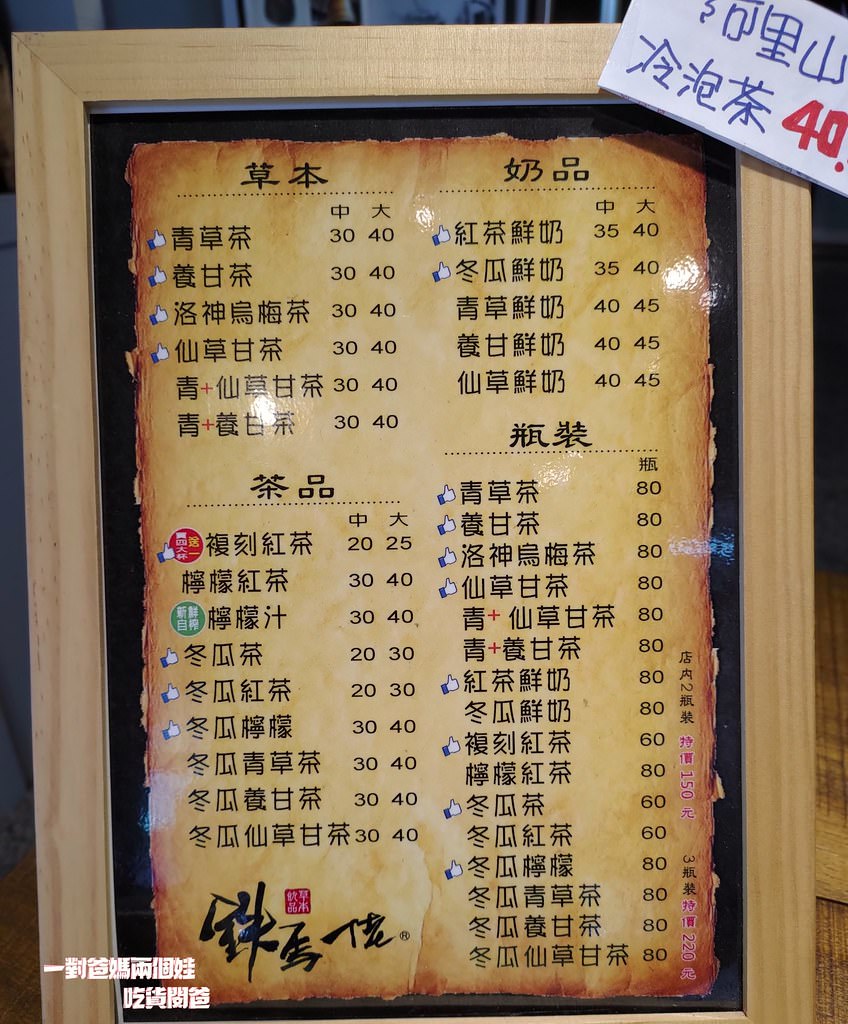 阿里山
冷泡茶 40.
草本
中 大
青草茶 30 40
養甘茶 30 40
洛神烏梅茶 30 40
仙草甘茶 30 40
青+仙草甘茶 30 40
青+養甘茶 30 40
茶品
中 大
買四大杯送一 複刻紅茶 20 25
檸檬紅茶 30 40
新鮮自榨 檸檬汁 30 40
冬瓜茶 20 30
冬瓜紅茶 20 30
冬瓜檸檬 30 40
冬瓜青草茶 30 40
冬瓜養甘茶 30 40
冬瓜仙草甘茶 30 40
奶品
中 大
紅茶鮮奶 35 40
冬瓜鮮奶 35 40
青草鮮奶 40 45
養甘鮮奶 40 45
仙草鮮奶 40 45
瓶裝
瓶
青草茶 80
養甘茶 80
洛神烏梅茶 80
仙草甘茶 80
青+仙草甘茶 80
青+養甘茶 80
紅茶鮮奶 80
冬瓜鮮奶 80
複刻紅茶 60
檸檬紅茶 80
冬瓜茶 60
冬瓜紅茶 60
冬瓜檸檬 80
冬瓜青草茶 80
冬瓜養甘茶 80
冬瓜仙草甘茶 80
店內2瓶裝 特價 150 元
3瓶裝特價 220 元
草本飲品
®
一對爸媽兩個娃
吃貨闆爸